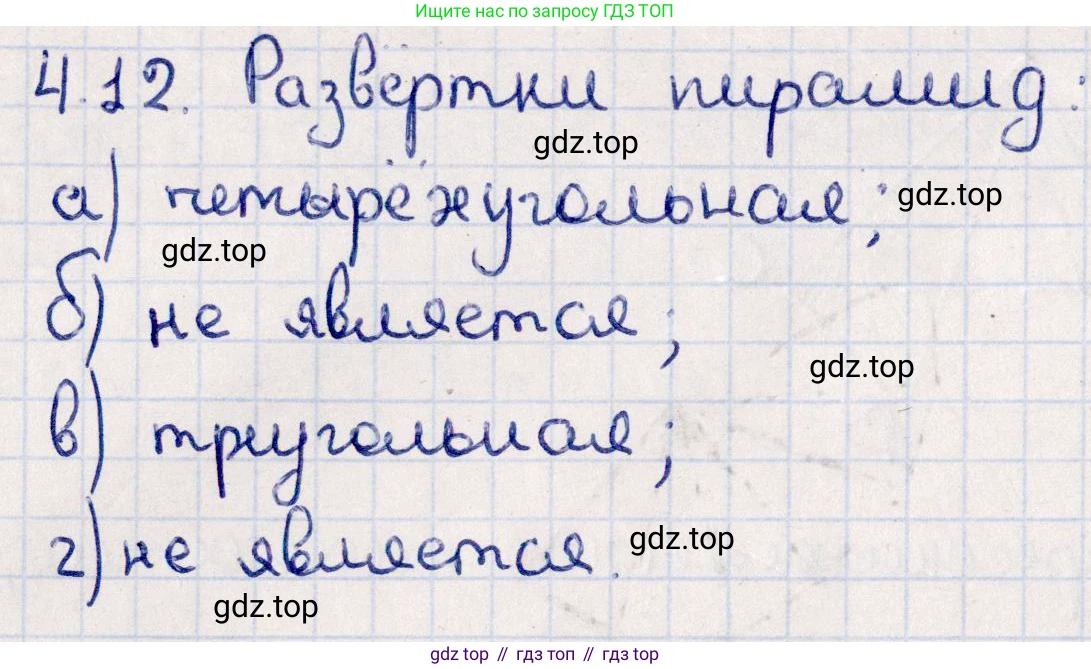 Ищите нас по запросу ГДЗ ТОП
4.12. Развёртки пирамид:
gdz.top
а) четырёхугольная;
gdz.top
gdz.top
б) не является;
gdz.top
в) треугольная;
г) не является.
gdz.top
gdz.top
gdz top // гдз топ // гдз top